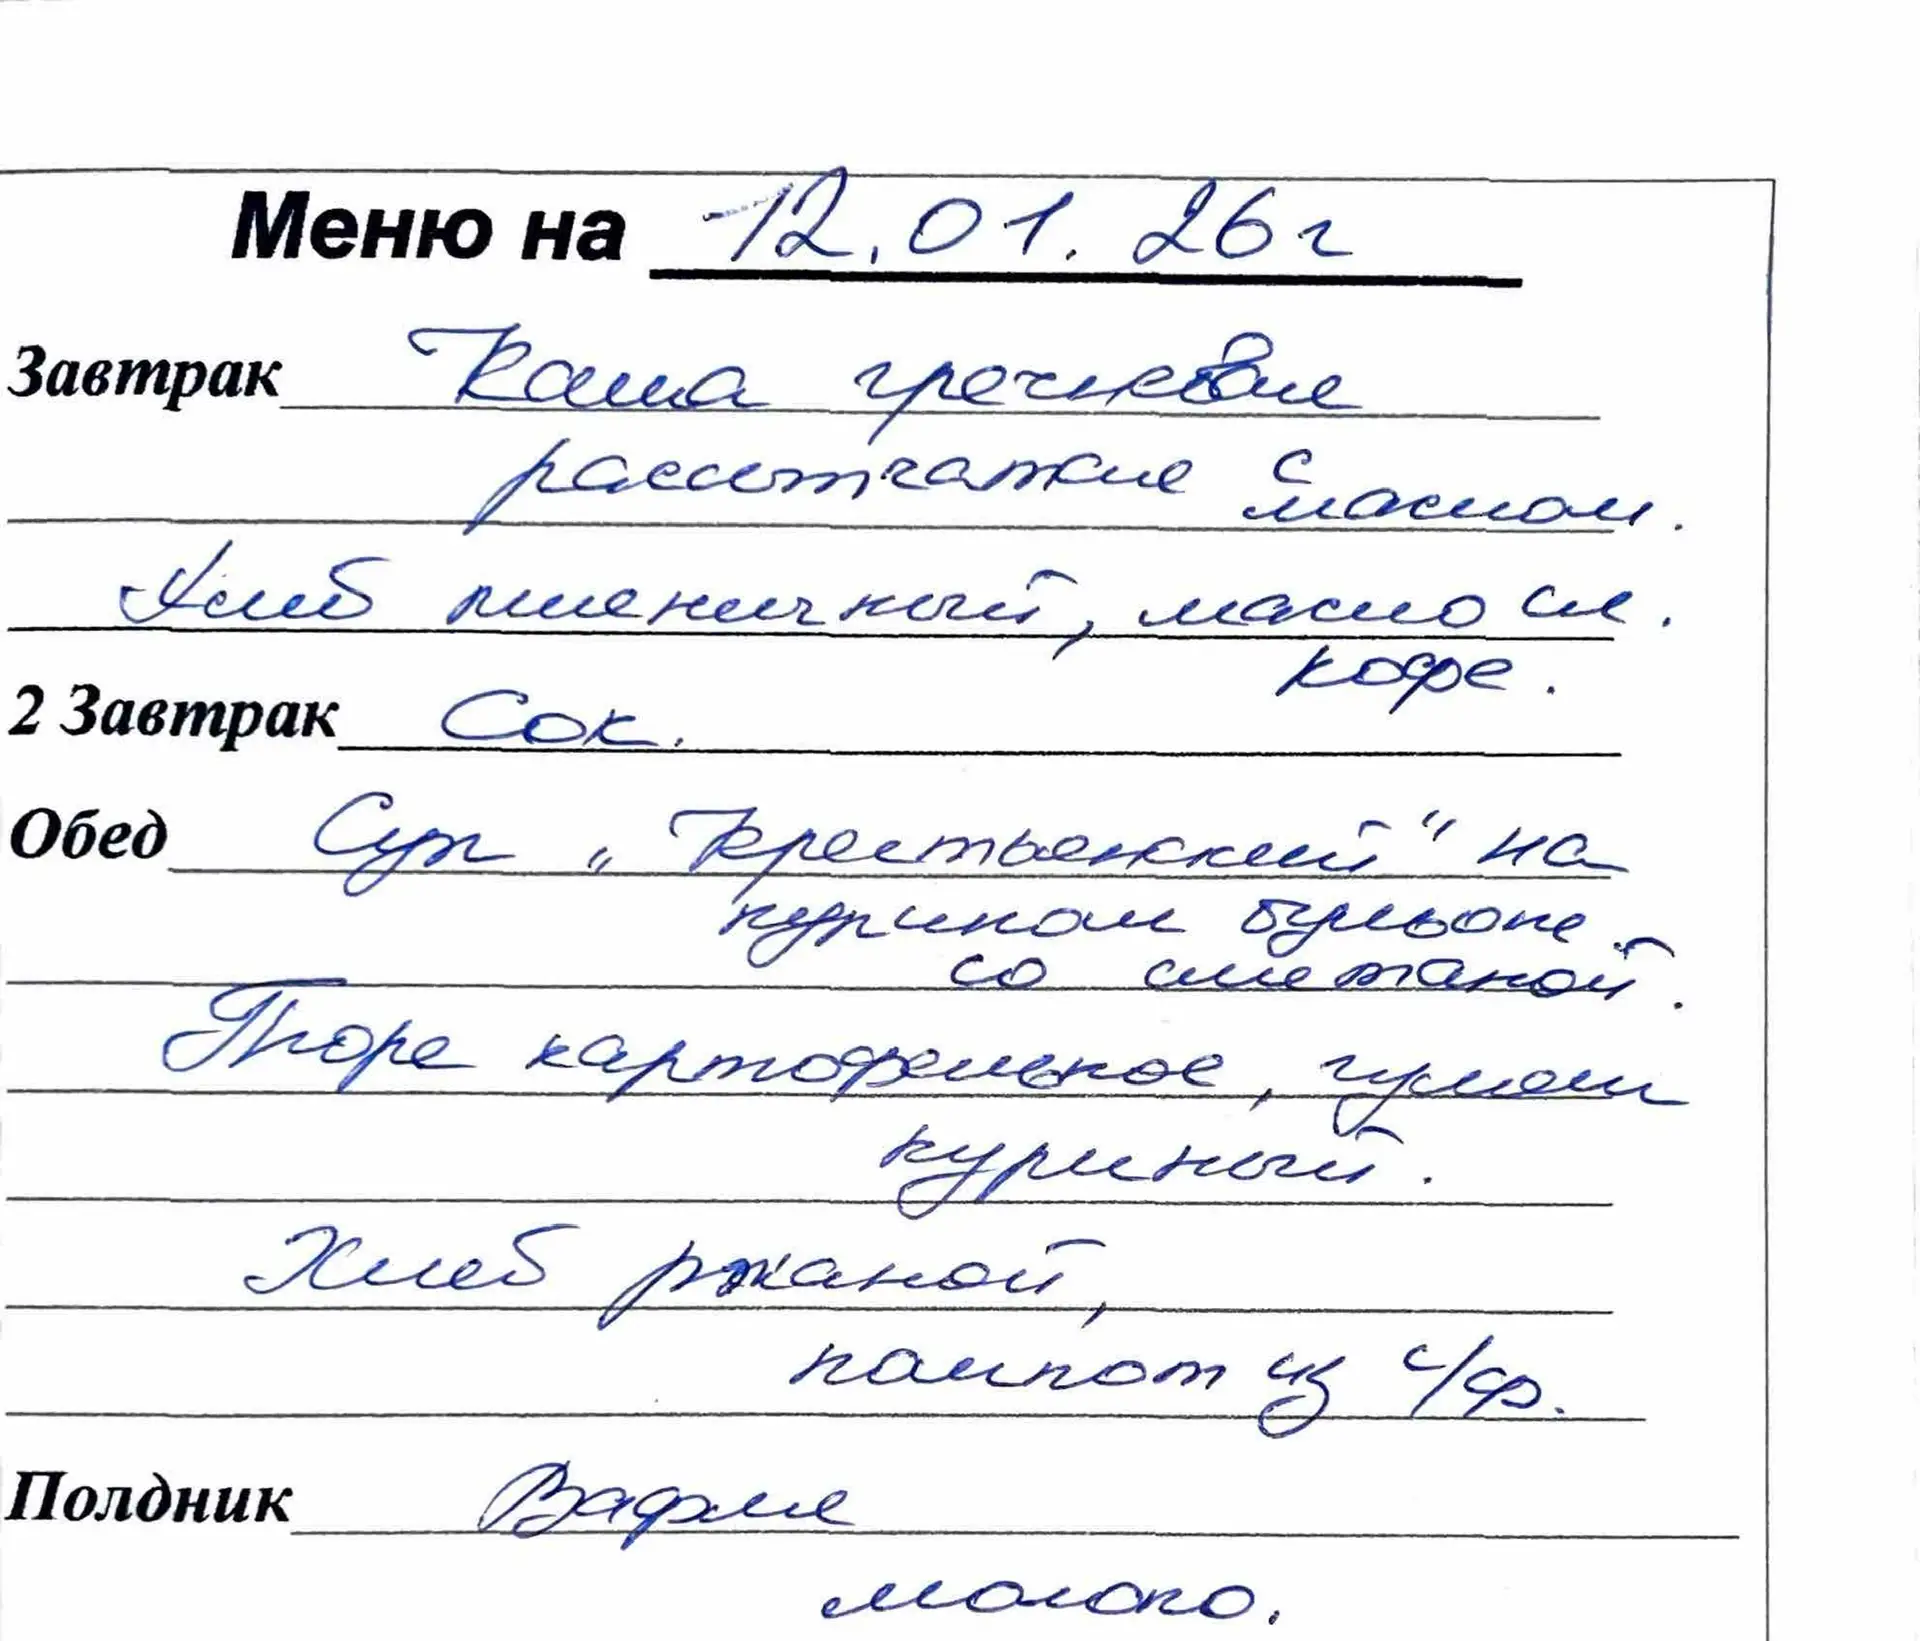 Меню на 12.01.26г
Завтрак Каша гречневая
рассыпчатая с маслом.
Хлеб пшеничный, масло сл.
кофе.
2 Завтрак Сок.
Обед Суп "Крестьянский" на
курином бульоне
со сметаной.
Пюре картофельное, гуляш
куриный.
Хлеб ржаной,
компот из с/ф.
Полдник Вафли
молоко.